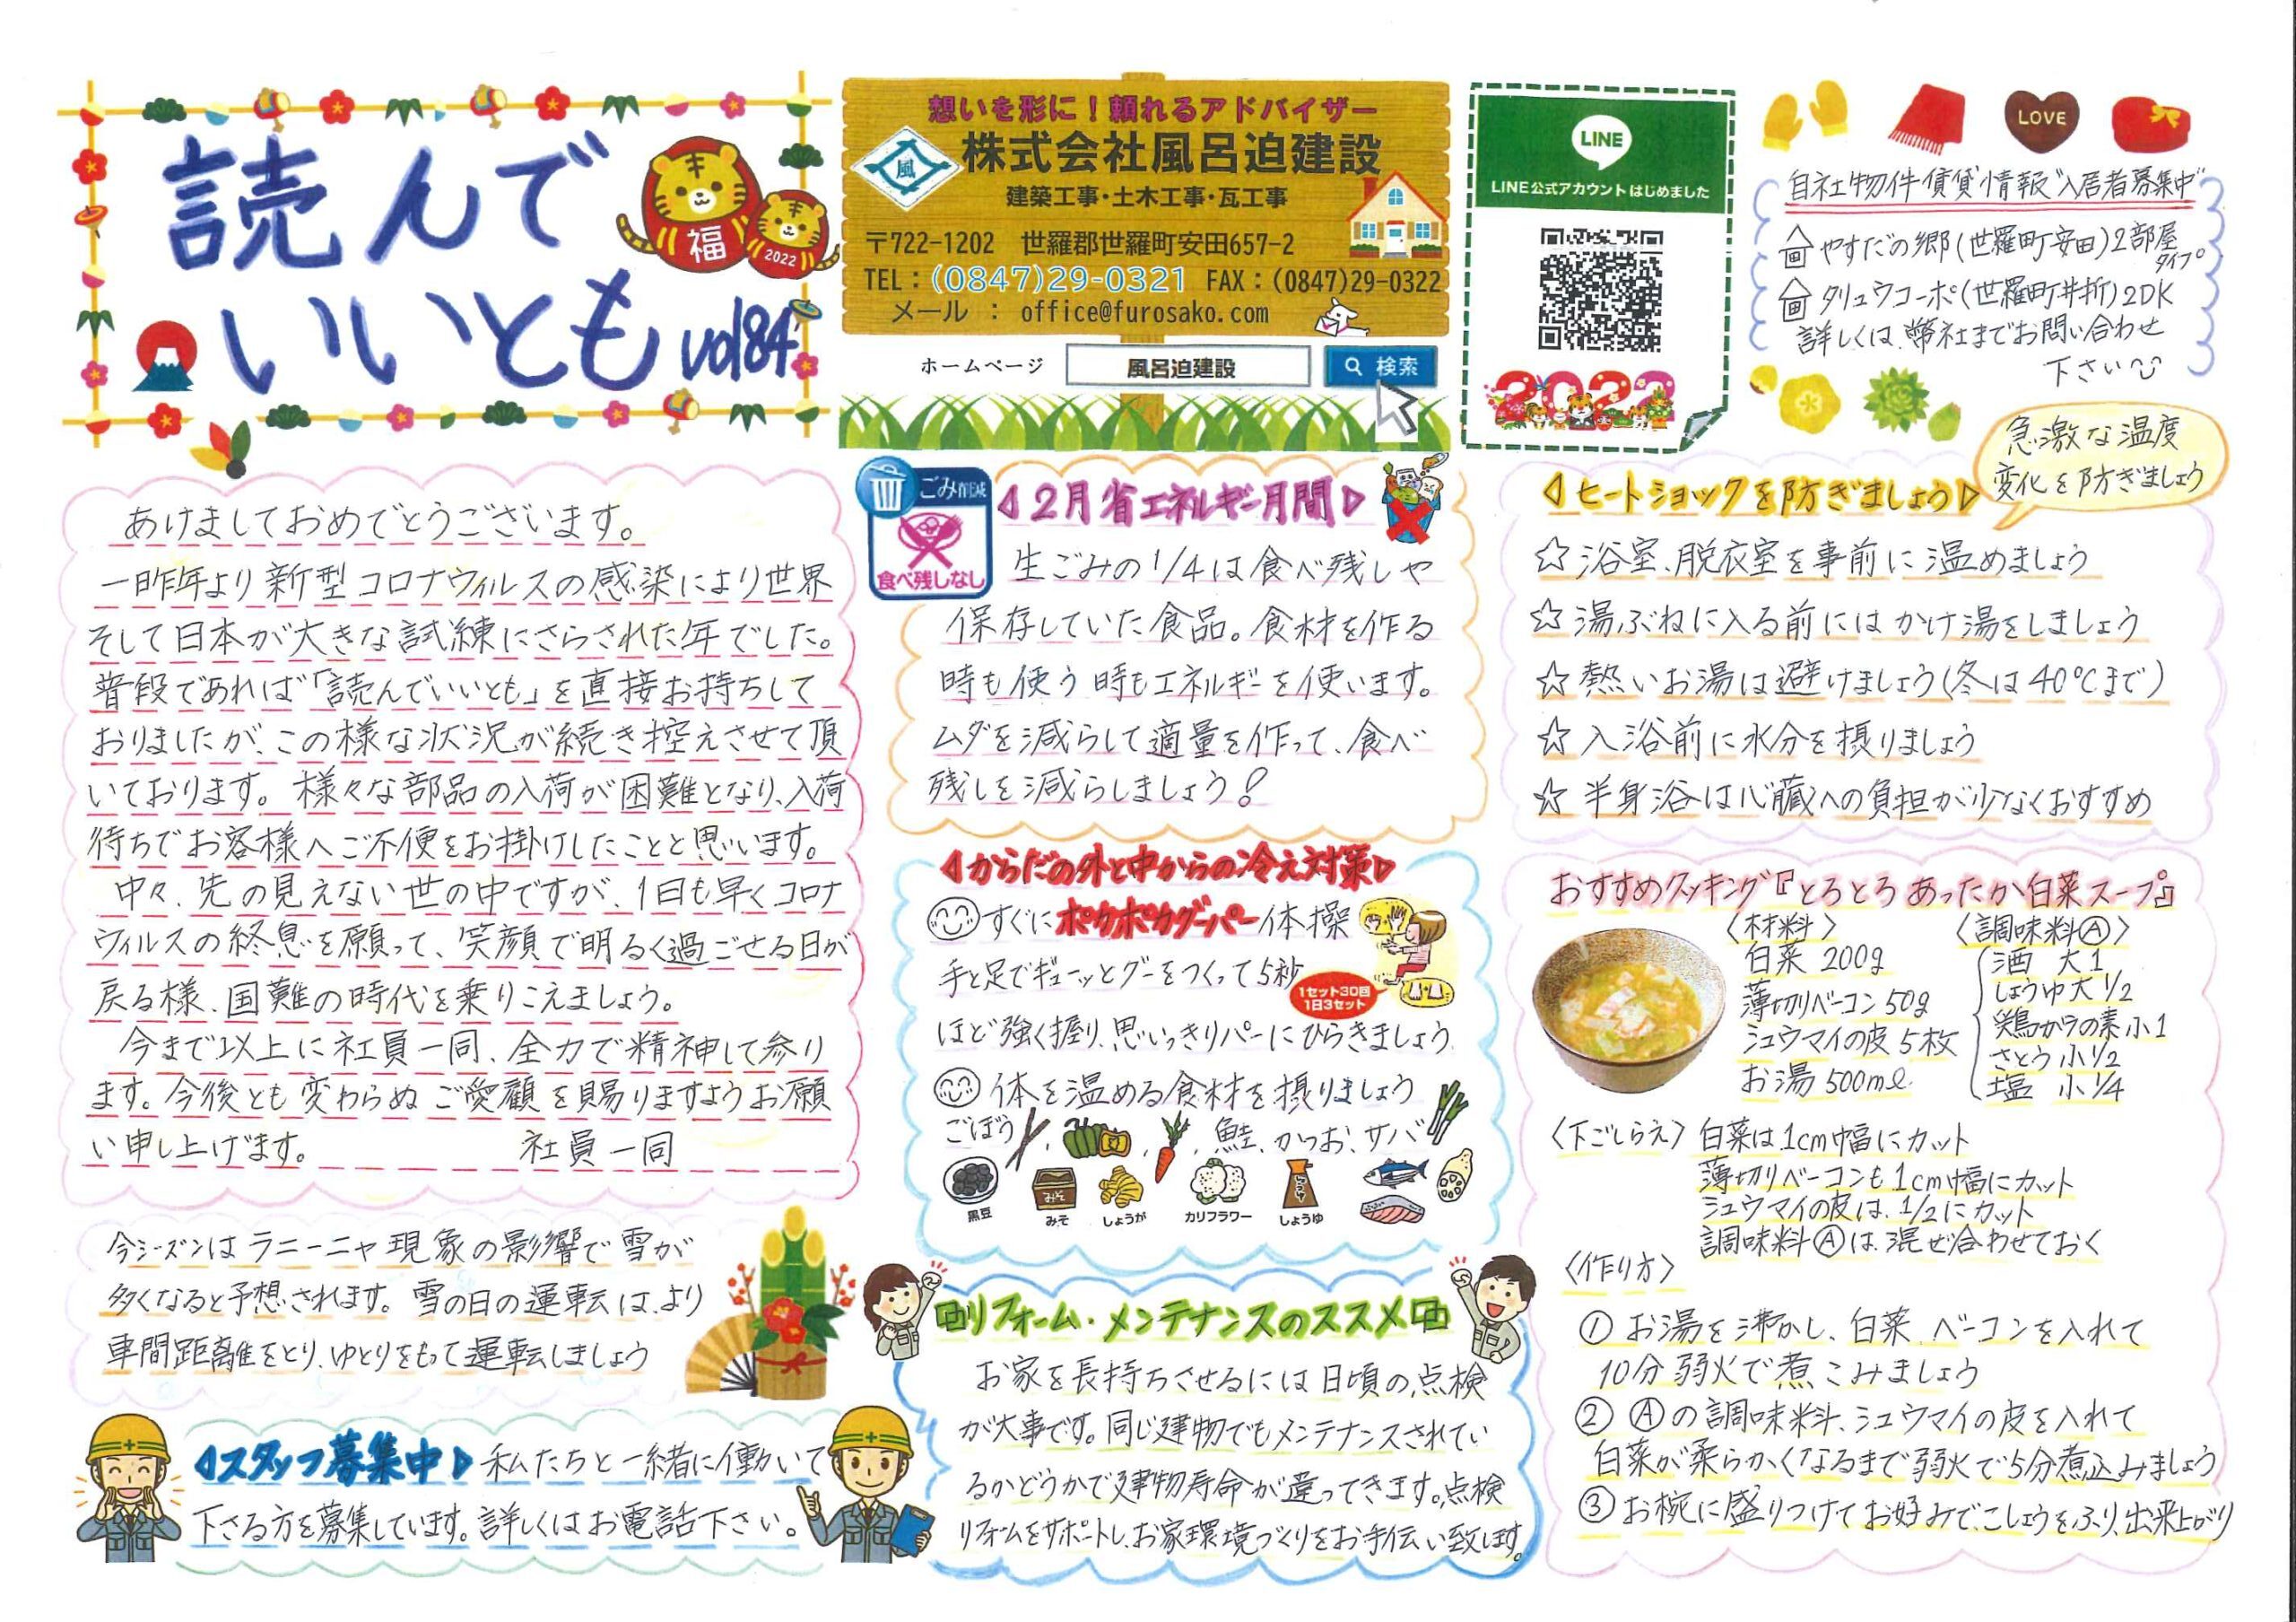 読んで
いいとも vol84
福
2022
想いを形に！頼れるアドバイザー
風
株式会社風呂迫建設
建築工事・土木工事・瓦工事
〒722-1202 世羅郡世羅町安田657-2
TEL：(0847)29-0321 FAX：(0847)29-0322
メール ： office@furosako.com
ホームページ 風呂迫建設 検索
LINE
LINE公式アカウントはじめました
2022
LOVE
自社物件賃貸情報"入居者募集中"
やすだの郷(世羅町安田)2部屋タイプ。
タリュウコーポ(世羅町井折)2DK
詳しくは、弊社までお問い合わせ
下さい
あけましておめでとうございます。
一昨年より新型コロナウィルスの感染により世界
そして日本が大きな試練にさらされた年でした。
普段であれば「読んでいいとも」を直接お持ちして
おりましたが、この様な状況が続き控えさせて頂
いております。様々な部品の入荷が困難となり、入荷
待ちでお客様へご不便をお掛けしたことと思います。
中々、先の見えない世の中ですが、1日も早くコロナ
ウィルスの終息を願って、笑顔で明るく過ごせる日が
戻る様、国難の時代を乗りこえましょう。
今まで以上に社員一同、全力で精神して参り
ます。今後とも変わらぬご愛顧を賜りますようお願
い申し上げます。 社員一同
今シーズンはラニーニャ現象の影響で雪が
多くなると予想されます。雪の日の運転は、より
車間距離をとり、ゆとりをもって運転しましょう
スタッフ募集中 私たちと一緒に働いて
下さる方を募集しています。詳しくはお電話下さい。
ごみ削減
食べ残しなし
2月省エネルギー月間
生ごみの1/4は食べ残しや
保存していた食品。食材を作る
時も使う時もエネルギーを使います。
ムダを減らして適量を作って、食べ
残しを減らしましょう！
からだの外と中からの冷え対策
すぐにポカポカグーパー体操
手と足でギューッとグーをつくって5秒
1セット30回
1日3セット
ほど強く握り、思いっきりパーにひらきましょう。
体を温める食材を摂りましょう
ごぼう、、、鮭、かつお、サバ
黒豆 みそ しょうが カリフラワー しょうゆ
みそ
リフォーム・メンテナンスのススメ
お家を長持ちさせるには日頃の点検
が大事です。同じ建物でもメンテナンスされてい
るかどうかで建物寿命が違ってきます。点検
リフォームをサポートし、お家環境づくりをお手伝い致します。
急激な温度
変化を防ぎましょう
ヒートショックを防ぎましょう
☆浴室、脱衣室を事前に温めましょう
☆湯ぶねに入る前にはかけ湯をしましょう
☆熱いお湯は避けましょう(冬は40℃まで)
☆入浴前に水分を摂りましょう
☆半身浴は心臓への負担が少なくおすすめ
おすすめクッキング『とろとろあったか白菜スープ』
〈材料〉
白菜 200g
薄切りベーコン 50g
シュウマイの皮 5枚
お湯 500mℓ
〈調味料Ⓐ〉
酒 大1
しょうゆ 大1/2
鶏ガラの素 小1
さとう 小1/2
塩 小1/4
〈下ごしらえ〉白菜は1cm幅にカット
薄切りベーコンも1cm幅にカット
シュウマイの皮は、1/2にカット
調味料Ⓐは、混ぜ合わせておく
〈作り方〉
①お湯を沸かし、白菜、ベーコンを入れて
10分弱火で煮こみましょう
②Ⓐの調味料、シュウマイの皮を入れて
白菜が柔らかくなるまで弱火で5分煮込みましょう
③お椀に盛りつけてお好みで、こしょうをふり、出来上がり